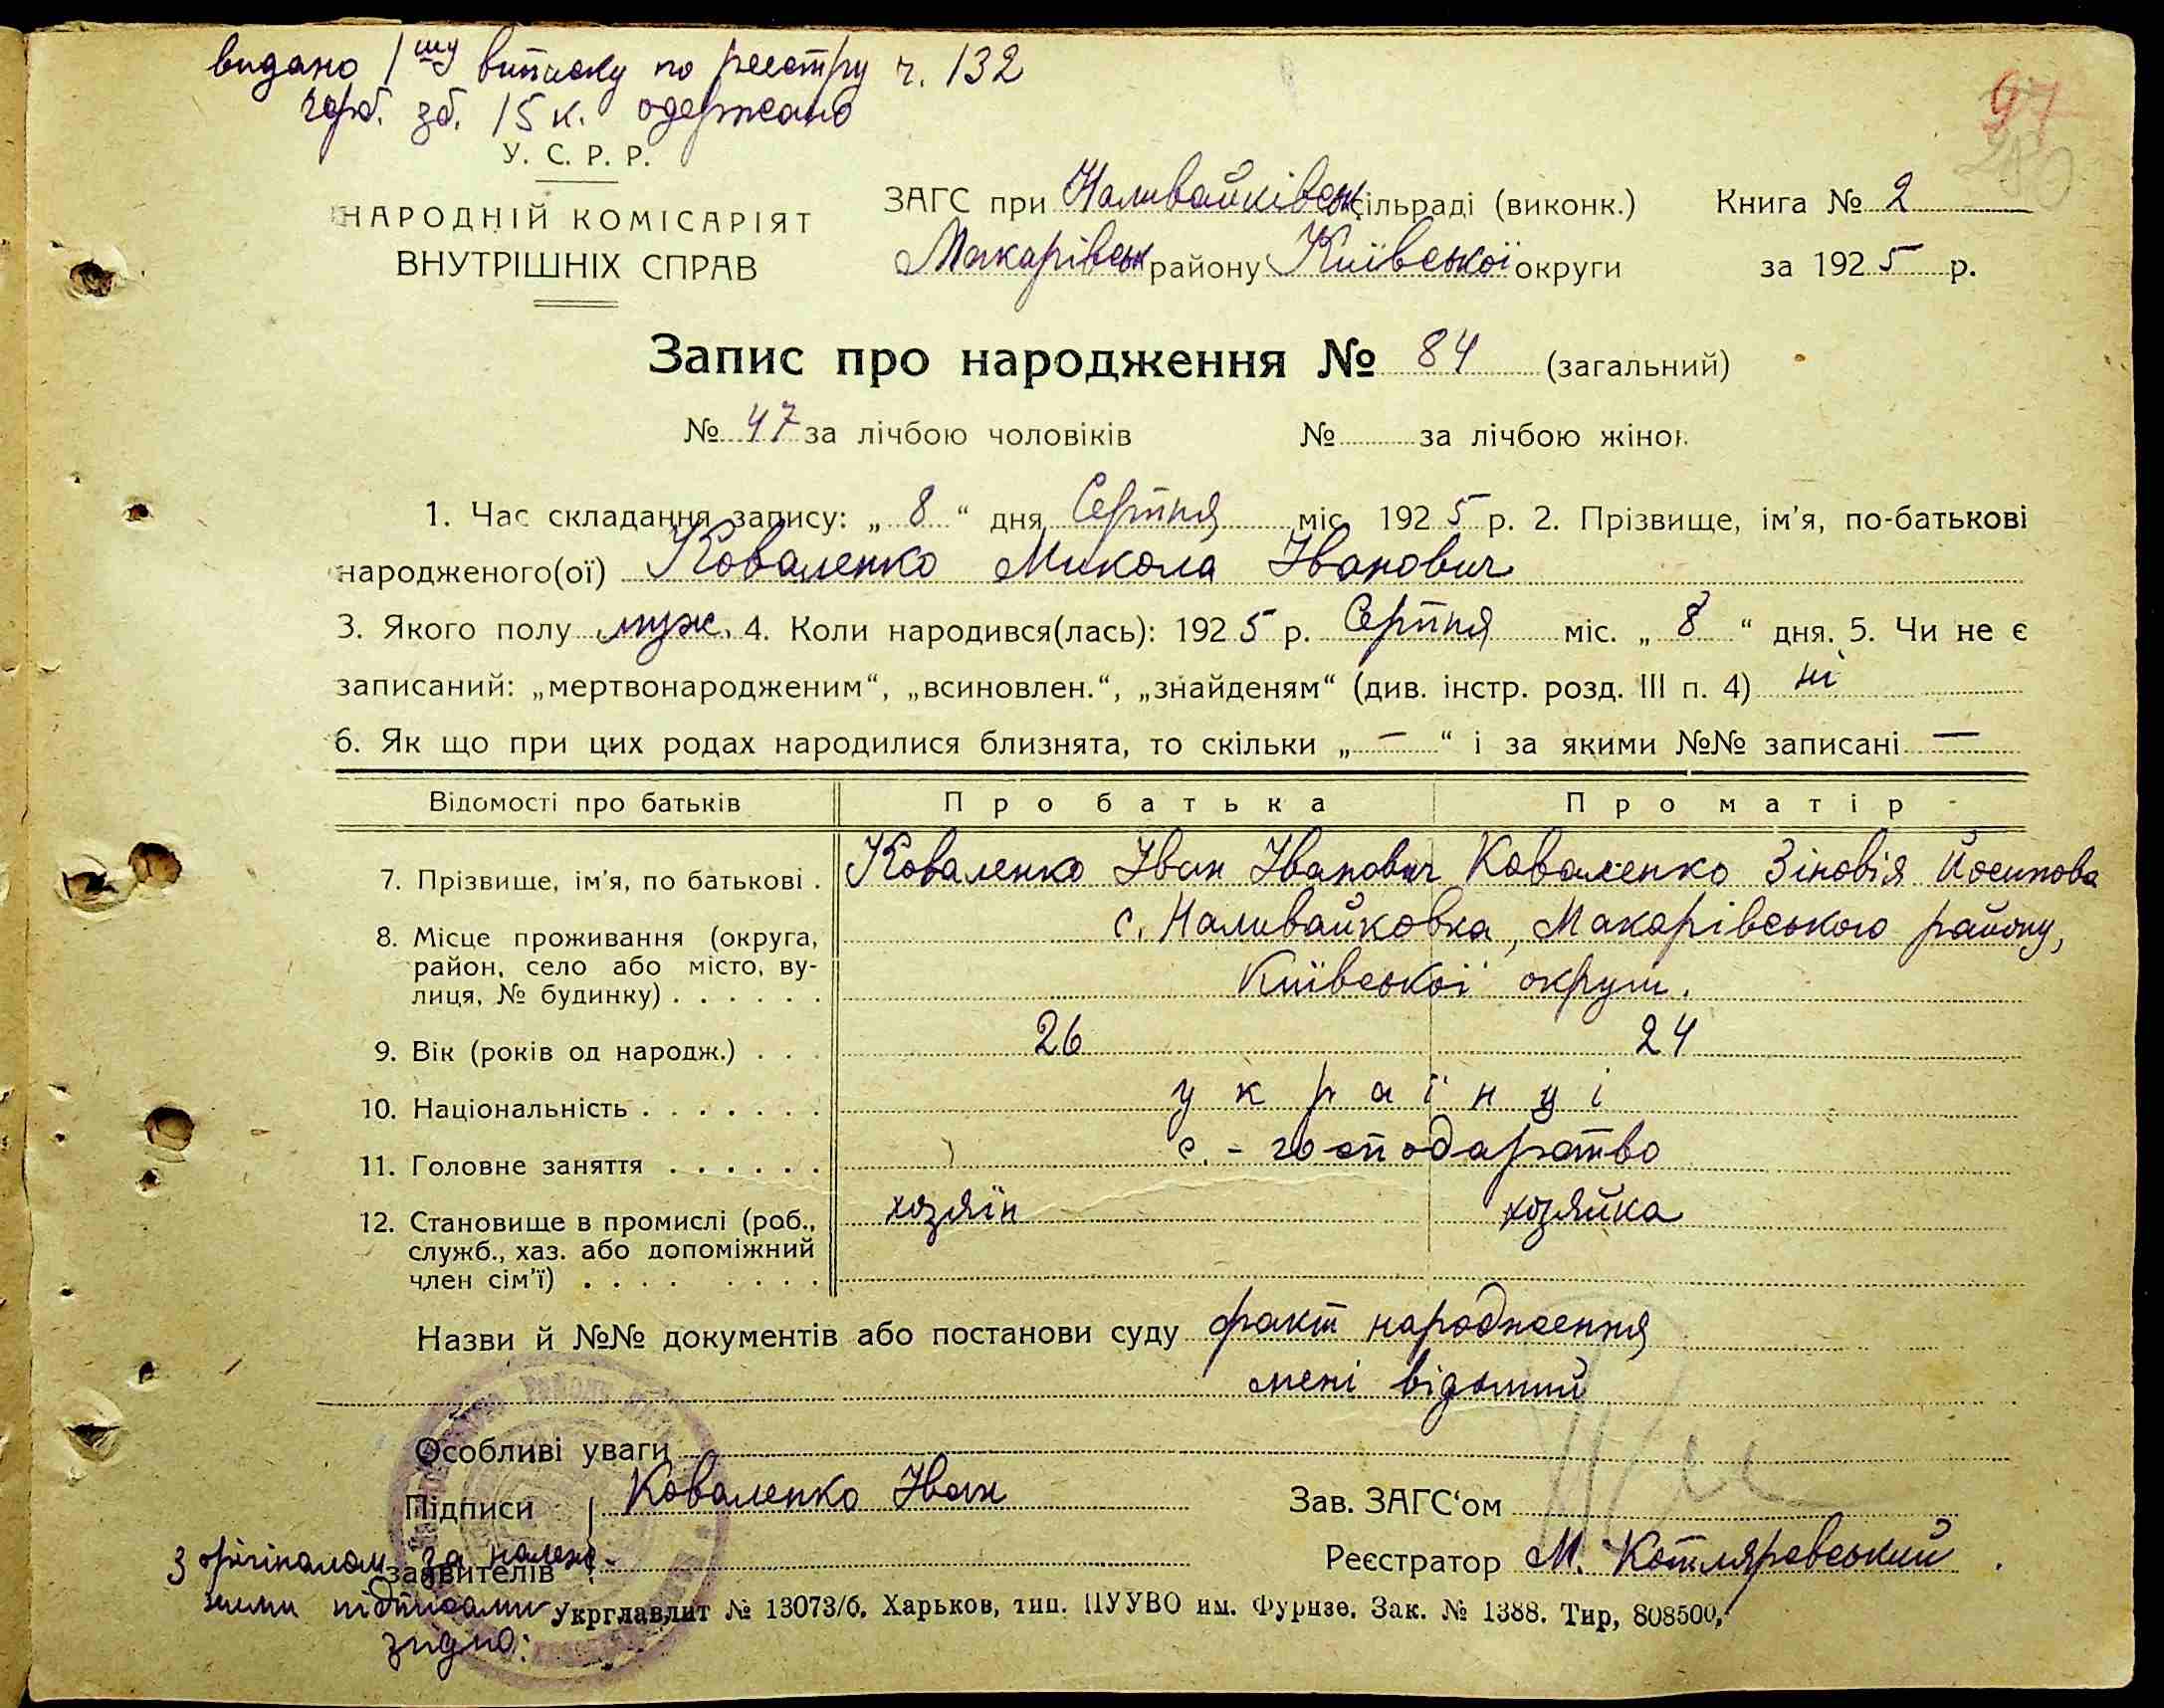 видано 1шу виписку по реєстру ч. 132
герб. зб. 15 к. одержано
У. С. Р. Р.
НАРОДНІЙ КОМІСАРІЯТ
ВНУТРІШНІХ СПРАВ
ЗАГС при Наливайківськ сільраді (виконк.) Книга № 2
Макарівськ району Київської округи за 1925 р.
97
Запис про народження № 84 (загальний)
№ 47 за лічбою чоловіків № за лічбою жінок
1. Час складання запису: „ 8 “ дня Серпня міс. 1925 р. 2. Прізвище, ім'я, по-батькові
народженого(ої) Коваленко Микола Іванович
3. Якого полу муж. 4. Коли народився(лась): 1925 р. Серпня міс. „ 8 “ дня. 5. Чи не є
записаний: „мертвонародженим“, „всиновлен.“, „знайденям“ (див. інстр. розд. III п. 4) ні
6. Як що при цих родах народилися близнята, то скільки „ — “ і за якими №№ записані —
Відомості про батьків Про батька Про матір
7. Прізвище, ім'я, по батькові . Коваленко Іван Іванович Коваленко Зіновія Йосипова
8. Місце проживання (округа, с. Наливайковка, Макарівського району,
район, село або місто, ву-
лиця, № будинку) . . . . . . Київської округи.
9. Вік (років од народж.) . . . 26 24
10. Національність . . . . . . . українці
11. Головне заняття . . . . . . с.-господарство
12. Становище в промислі (роб., хозяїн хозяйка
служб., хаз. або допоміжний
член сім'ї) . . . . . . . .
Назви й №№ документів або постанови суду факт народження
мені відомий
Особливі уваги
Підписи Коваленко Іван Зав. ЗАГС'ом
заявителів Реєстратор М. Котляревський
З оригіналом за належ-
ними підписами
згідно:
Укрглавлит № 13073/б. Харьков, тип. ПУУВО им. Фрунзе. Зак. № 1388. Тир, 808500,